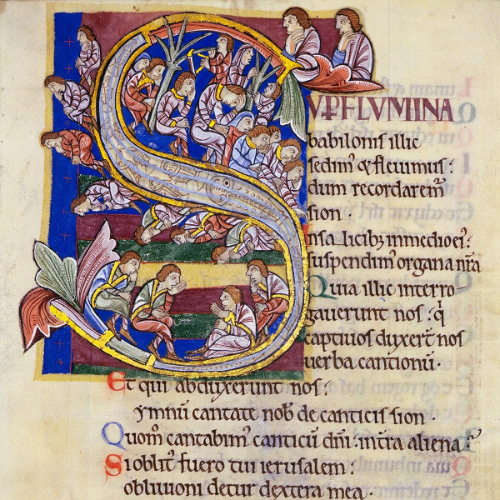 SUP̄FLUMINA
babilonis illic
sedimꝰ & fleuimus:
dum recordaremꝰ
sion.
Insalicib; inmedioeiꝰ:
suspendimꝰ organa nr̄a
Quia illic interro
gauerunt nos: qͥ
captiuos duxer̄t nos
uerba cantionū.
Et qui abduxerunt nos:
ymnū cantate nob̄ de canticis sion.
Quom̊ cantabimꝰ canticū dn̄i: int̄ra aliena?
Si oblitꝰ fuero tui ierusalem:
obliuioni detur dextera mea.